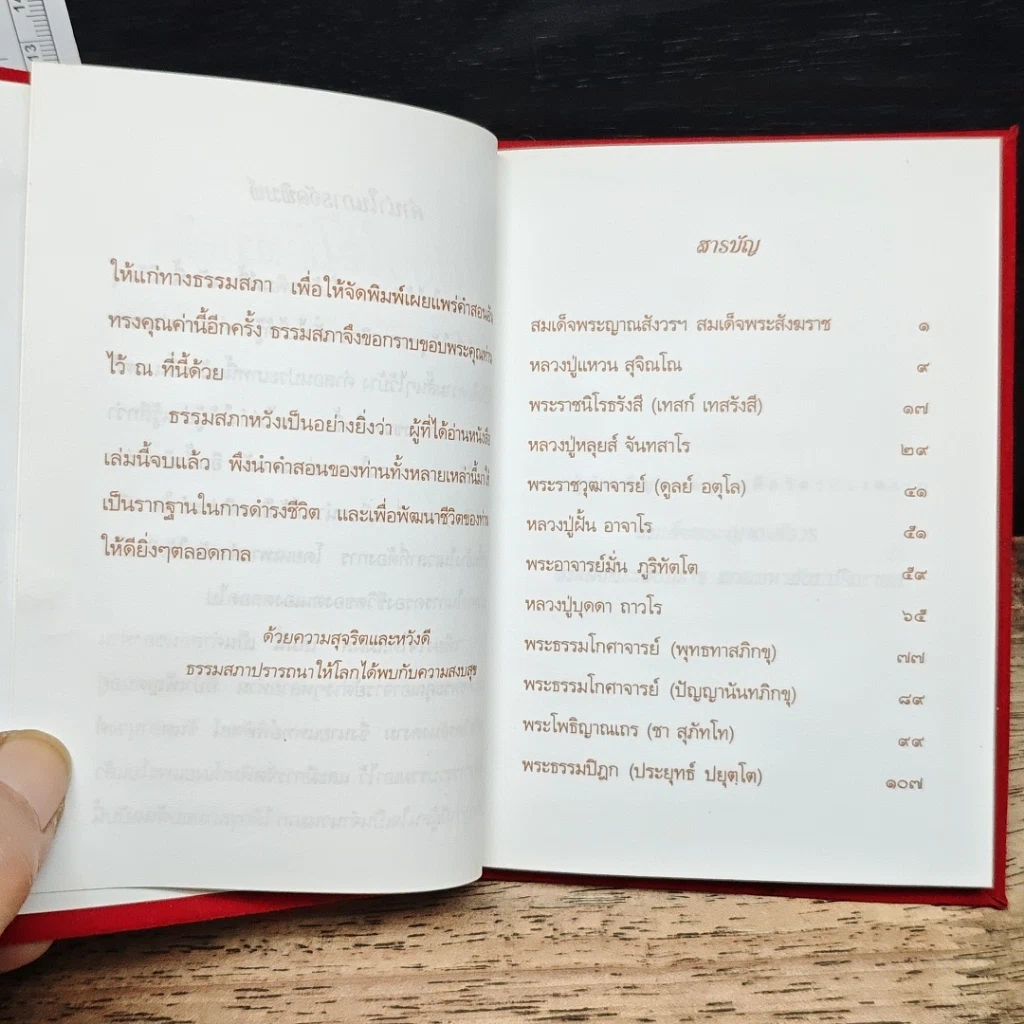 ให้แก่ทางธรรมสภา เพื่อให้จัดพิมพ์เผยแพร่คำสอนอัน
ทรงคุณค่านี้อีกครั้ง ธรรมสภาจึงขอกราบขอบพระคุณท่าน
ไว้ ณ ที่นี้ด้วย
ธรรมสภาหวังเป็นอย่างยิ่งว่า ผู้ที่ได้อ่านหนังสือ
เล่มนี้จบแล้ว พึงนำคำสอนของท่านทั้งหลายเหล่านี้มาใช้
เป็นรากฐานในการดำรงชีวิต และเพื่อพัฒนาชีวิตของท่าน
ให้ดียิ่งๆตลอดกาล
ด้วยความสุจริตและหวังดี
ธรรมสภาปรารถนาให้โลกได้พบกับความสงบสุข
สารบัญ
สมเด็จพระญาณสังวรฯ สมเด็จพระสังฆราช ๑
หลวงปู่แหวน สุจิณโณ ๙
พระราชนิโรธรังสี (เทสก์ เทสรังสี) ๑๗
หลวงปู่หลุยส์ จันทสาโร ๒๙
พระราชวุฒาจารย์ (ดูลย์ อตุโล) ๔๑
หลวงปู่ฝั้น อาจาโร ๕๑
พระอาจารย์มั่น ภูริทัตโต ๕๙
หลวงปู่บุดดา ถาวโร ๖๕
พระธรรมโกศาจารย์ (พุทธทาสภิกขุ) ๗๗
พระธรรมโกศาจารย์ (ปัญญานันทภิกขุ) ๘๙
พระโพธิญาณเถร (ชา สุภัทโท) ๙๙
พระธรรมปิฎก (ประยุทธ์ ปยุตฺโต) ๑๐๗
14
13